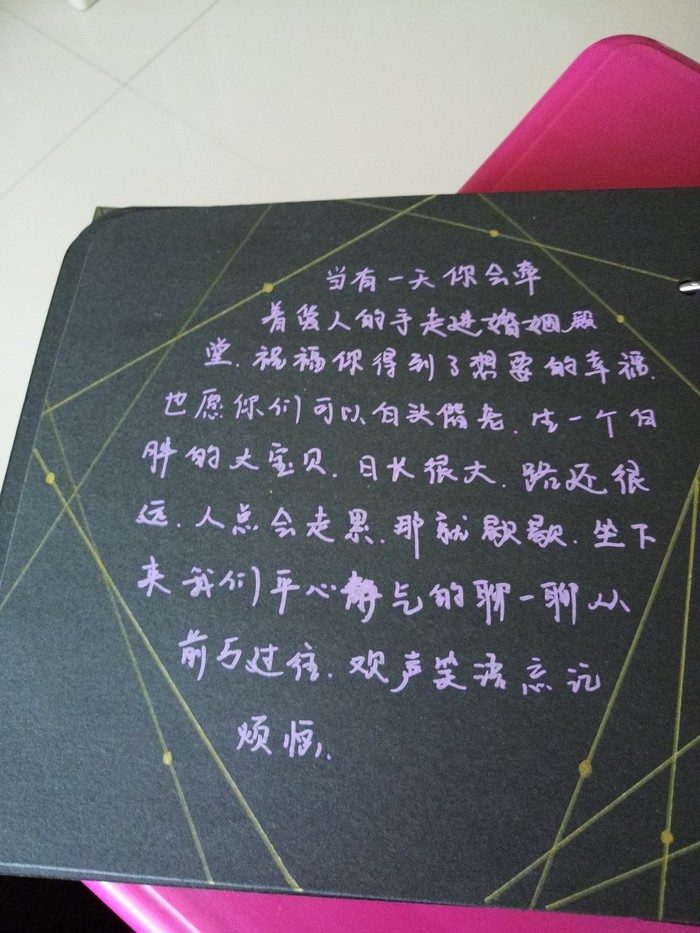 当有一天你会牵
着爱人的手走进婚姻殿
堂.祝福你得到了想要的幸福.
也愿你们可以白头偕老.生一个白
胖的大宝贝.日长很大.路还很
远.人总会走累.那就歇歇.坐下
来我们平心静气的聊一聊从
前与过往.欢声笑语忘记
烦恼.